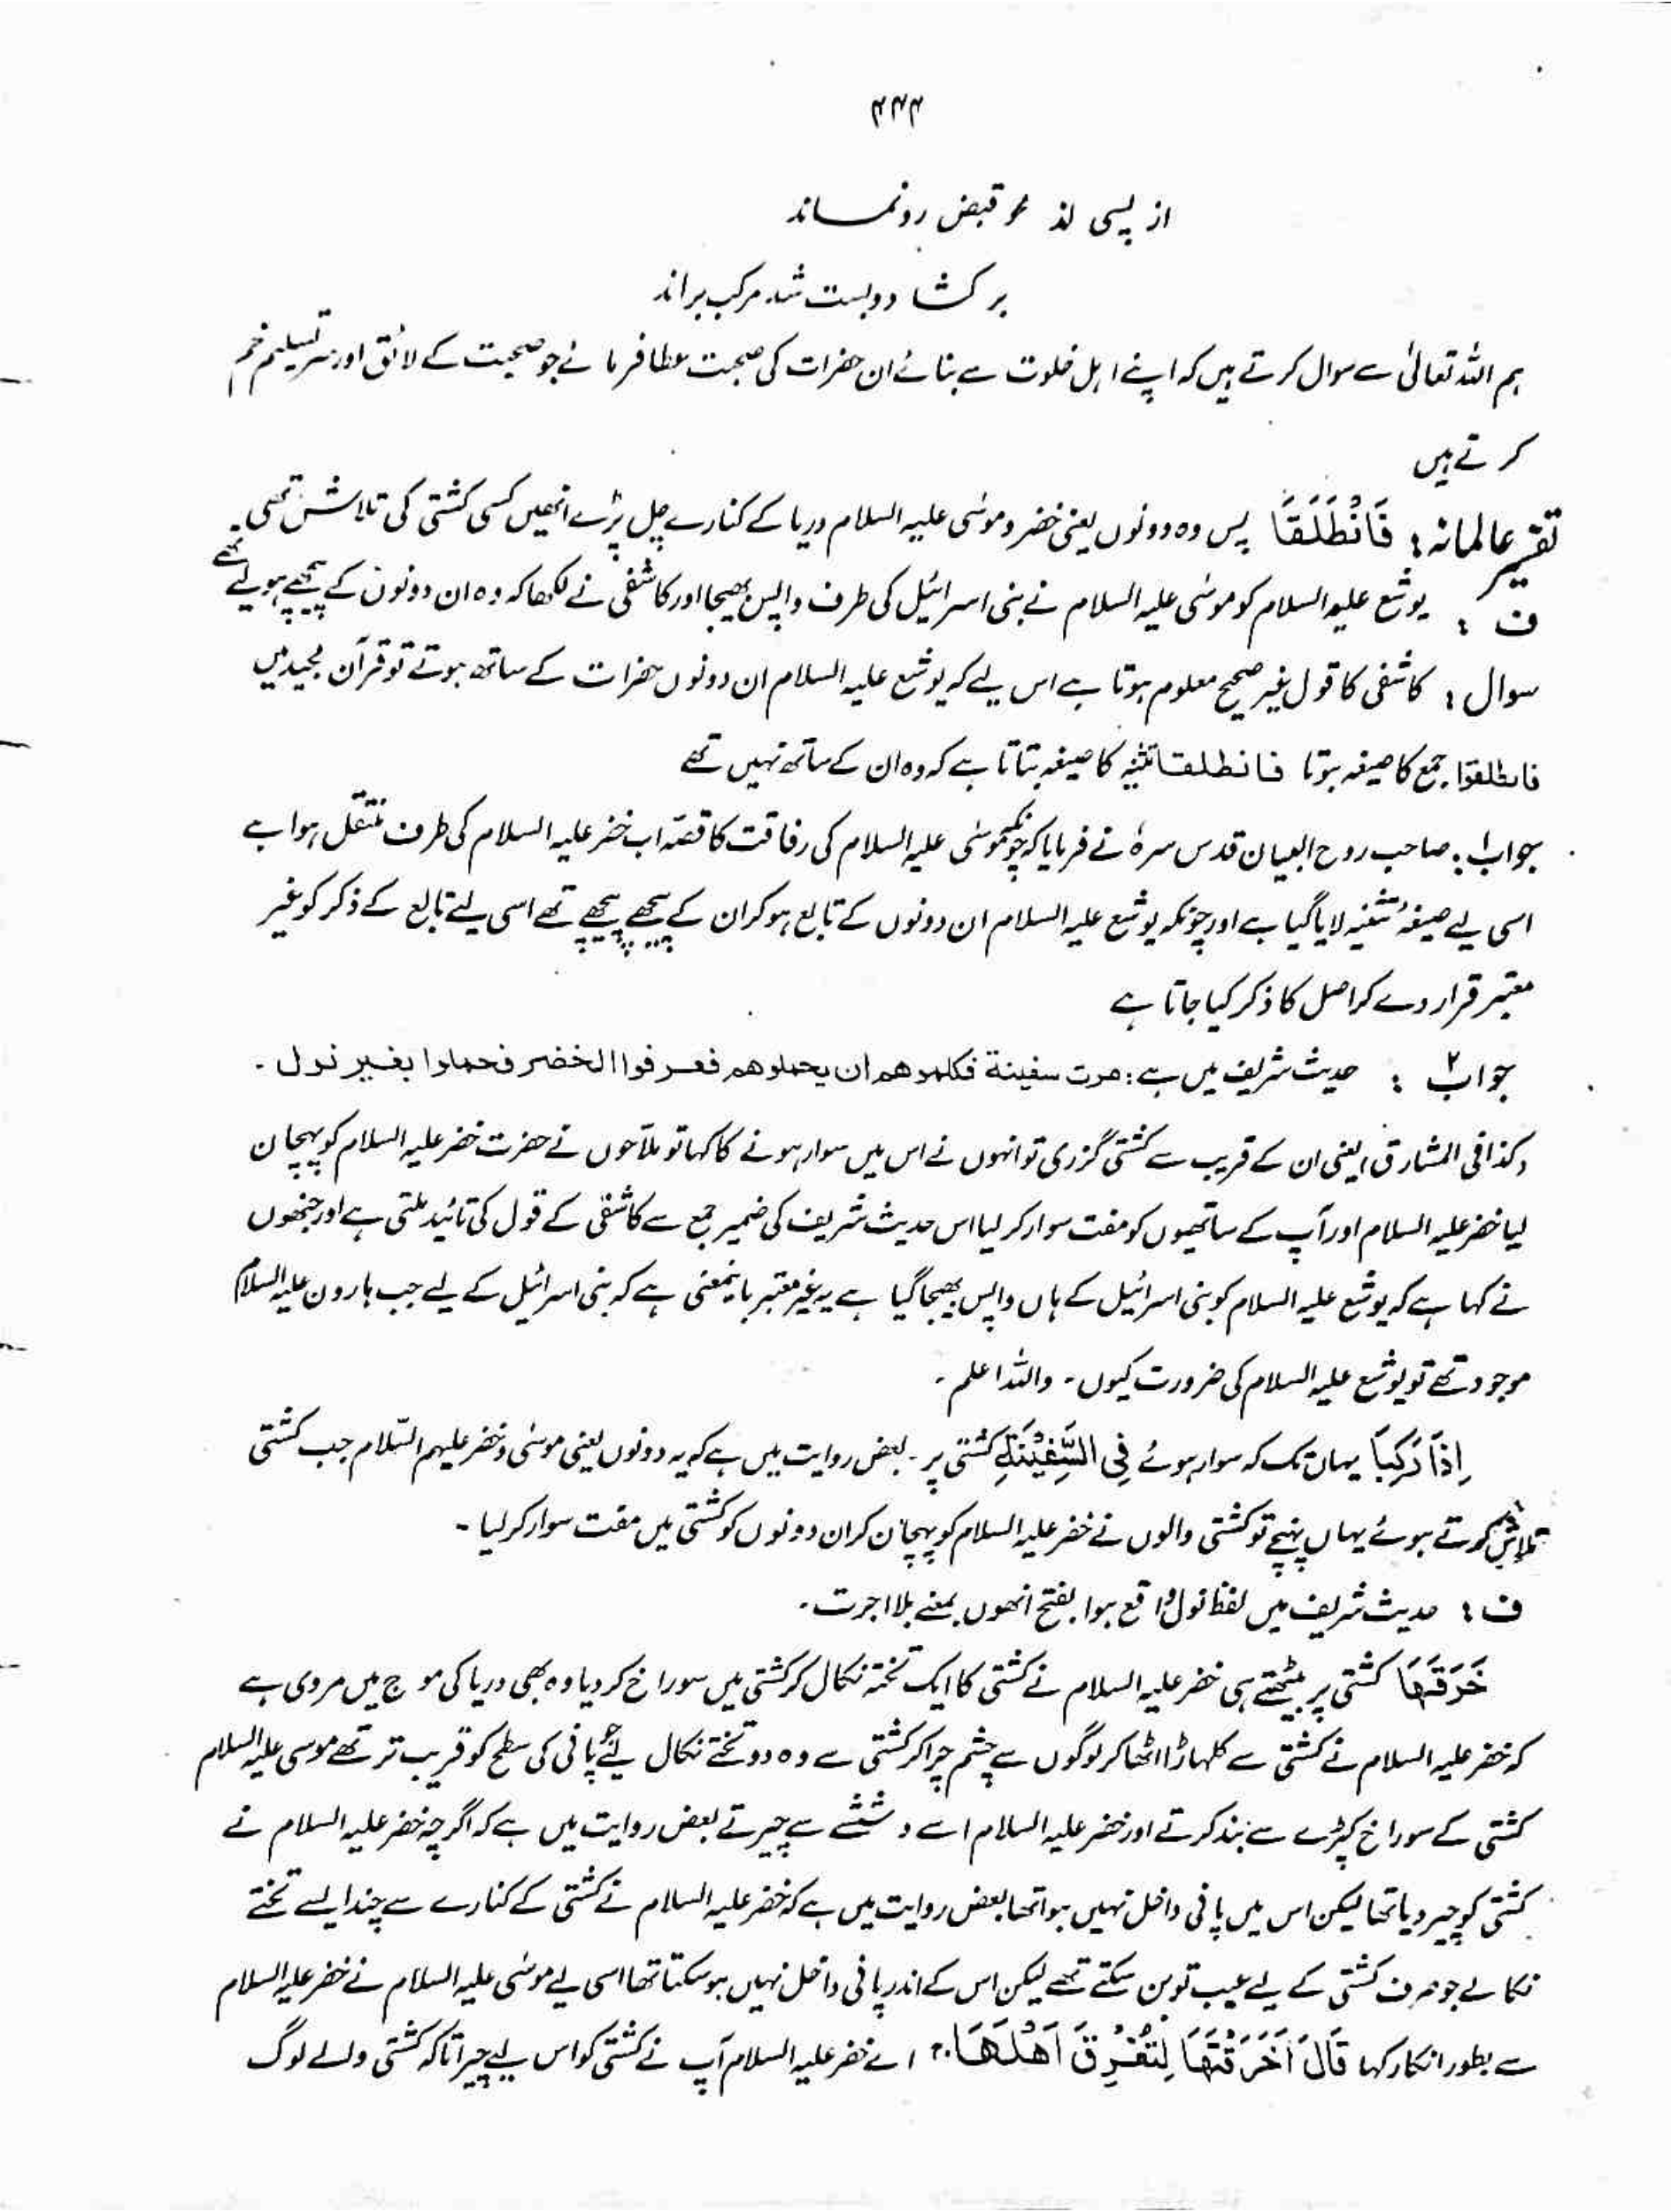 ۴۴۴
از پسی لذ قبض رونمساند
بر کشا دوبست شد مرکب براند
ہم اللہ تعالیٰ سے سوال کرتے ہیں کہ اپنے اہل خلوت سے بنائے ان حضرات کی صحبت عطا فرمائے جو صحبت کے لائق اور سر تسلیم خم
کرتے ہیں
تفسیر عالمانہ: فَانْطَلَقَا پس وہ دونوں یعنی خضر و موسٰی علیہ السلام دریا کے کنارے چل پڑے انھیں کسی کشتی کی تلاش تھی۔
ف: یوشع علیہ السلام کو موسٰی علیہ السلام نے بنی اسرائیل کی طرف واپس بھیجا اور کاشفی نے لکھا کہ وہ ان دونوں کے پیچھے ہولیے تھے
سوال: کاشفی کا قول غیر صحیح معلوم ہوتا ہے اس لیے کہ یوشع علیہ السلام ان دونوں حضرات کے ساتھ ہوتے تو قرآن مجید میں
فانطلقوا جمع کا صیغہ ہوتا فانطلقا تثنیہ کا صیغہ بتاتا ہے کہ وہ ان کے ساتھ نہیں تھے
جواب۱: صاحب روح البیان قدس سرہٗ نے فرمایا کہ چونکہ موسٰی علیہ السلام کی رفاقت کا قصّہ اب خضر علیہ السلام کی طرف منتقل ہوا ہے
اسی لیے صیغۂ تثنیہ لایا گیا ہے اور چونکہ یوشع علیہ السلام ان دونوں کے تابع ہوکر ان کے پیچھے پیچھے تھے اسی لیے تابع کے ذکر کو غیر
معتبر قرار دے کر اصل کا ذکر کیا جاتا ہے
جواب۲: حدیث شریف میں ہے: مرت سفینة فکلموھم ان یحملوھم فعرفوا الخضر فحملوا بغیر نول۔
(کذا فی المشارق) یعنی ان کے قریب سے کشتی گزری تو انہوں نے اس میں سوار ہونے کا کہا تو ملاّحوں نے حضرت خضر علیہ السلام کو پہچان
لیا خضر علیہ السلام اور آپ کے ساتھیوں کو مفت سوار کرلیا اس حدیث شریف کی ضمیر جمع سے کاشفی کے قول کی تائید ملتی ہے اور جنھوں
نے کہا ہے کہ یوشع علیہ السلام کو بنی اسرائیل کے ہاں واپس بھیجا گیا ہے یہ غیر معتبر باینمعنی ہے کہ بنی اسرائیل کے لیے جب ہارون علیہ السلام
موجود تھے تو یوشع علیہ السلام کی ضرورت کیوں۔ واللہ اعلم۔
اِذَا رَكِبَا یہاں تک کہ سوار ہوئے فِی السَّفِیْنَةِ کشتی پر۔ بعض روایت میں ہے کہ یہ دونوں یعنی موسٰی و خضر علیہم السّلام جب کشتی
تلاش کرتے ہوئے یہاں پہنچے تو کشتی والوں نے خضر علیہ السلام کو پہچان کر ان دونوں کو کشتی میں مفت سوار کرلیا۔
ف: حدیث شریف میں لفظ نول واقع ہوا بفتح انھوں بمعنے بلا اجرت۔
خَرَقَهَا کشتی پر بیٹھتے ہی خضر علیہ السلام نے کشتی کا ایک تختہ نکال کر کشتی میں سوراخ کر دیا وہ بھی دریا کی موج میں مروی ہے
کہ خضر علیہ السلام نے کشتی سے کلہاڑا اٹھا کر لوگوں سے چشم چرا کر کشتی سے وہ دو تختے نکال لیے جو پانی کی سطح کو قریب تر تھے موسی علیہ السلام
کشتی کے سوراخ کپڑے سے بند کرتے اور خضر علیہ السلام اسے سے چیرتے بعض روایت میں ہے کہ اگرچہ خضر علیہ السلام نے
کشتی کو چیر دیا تھا لیکن اس میں پانی داخل نہیں ہوا تھا بعض روایت میں ہے کہ خضر علیہ السلام نے کشتی کے کنارے سے چند ایسے تختے
نکالے جو صرف کشتی کے لیے عیب تو بن سکتے تھے لیکن اس کے اندر پانی داخل نہیں ہوسکتا تھا اسی لیے موسٰی علیہ السلام نے خضر علیہ السلام
سے بطور انکار کہا قَالَ اَخَرَقْتَهَا لِتُغْرِقَ اَهْلَهَا۔ اے خضر علیہ السلام آپ نے کشتی کو اس لیے چیرا تاکہ کشتی والے لوگ